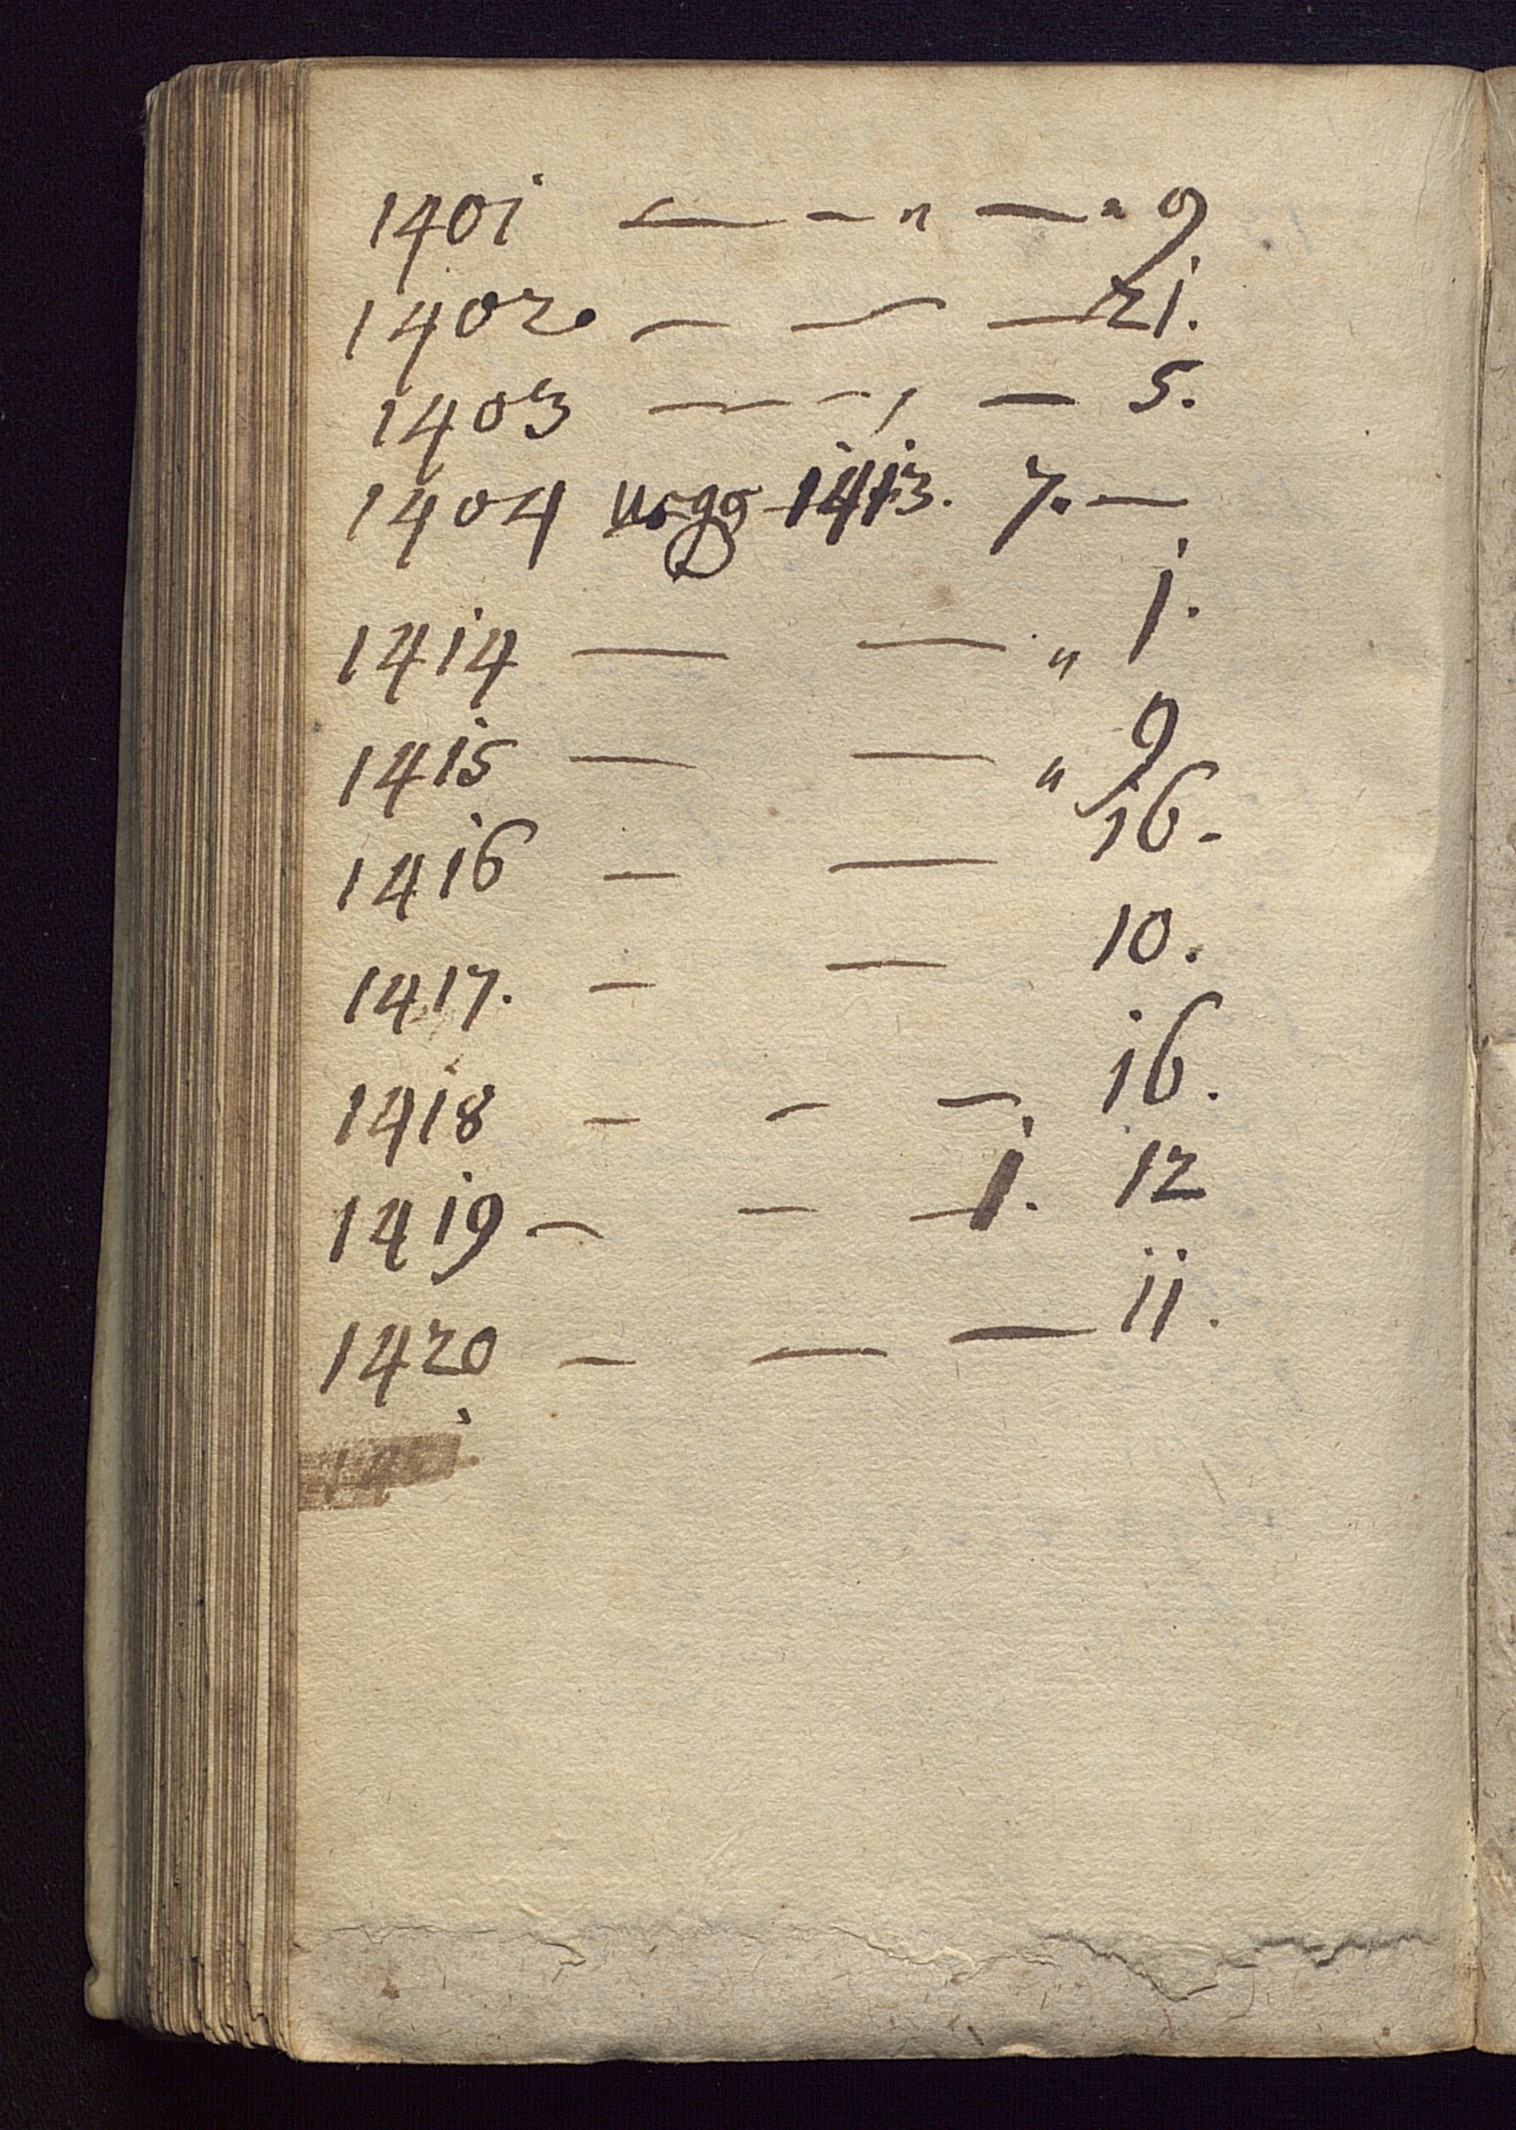 1401 — - " — " 9
1402. — — — 21.
1403 — - , — 5.
1404 usqq 1413. 7. —
1414 — — " 1.
1415 — — " 9
1416 — — 16.
1417. — — 10.
1418 — — — 16.
1419 — — — 1. 12
1420 — — — 11.